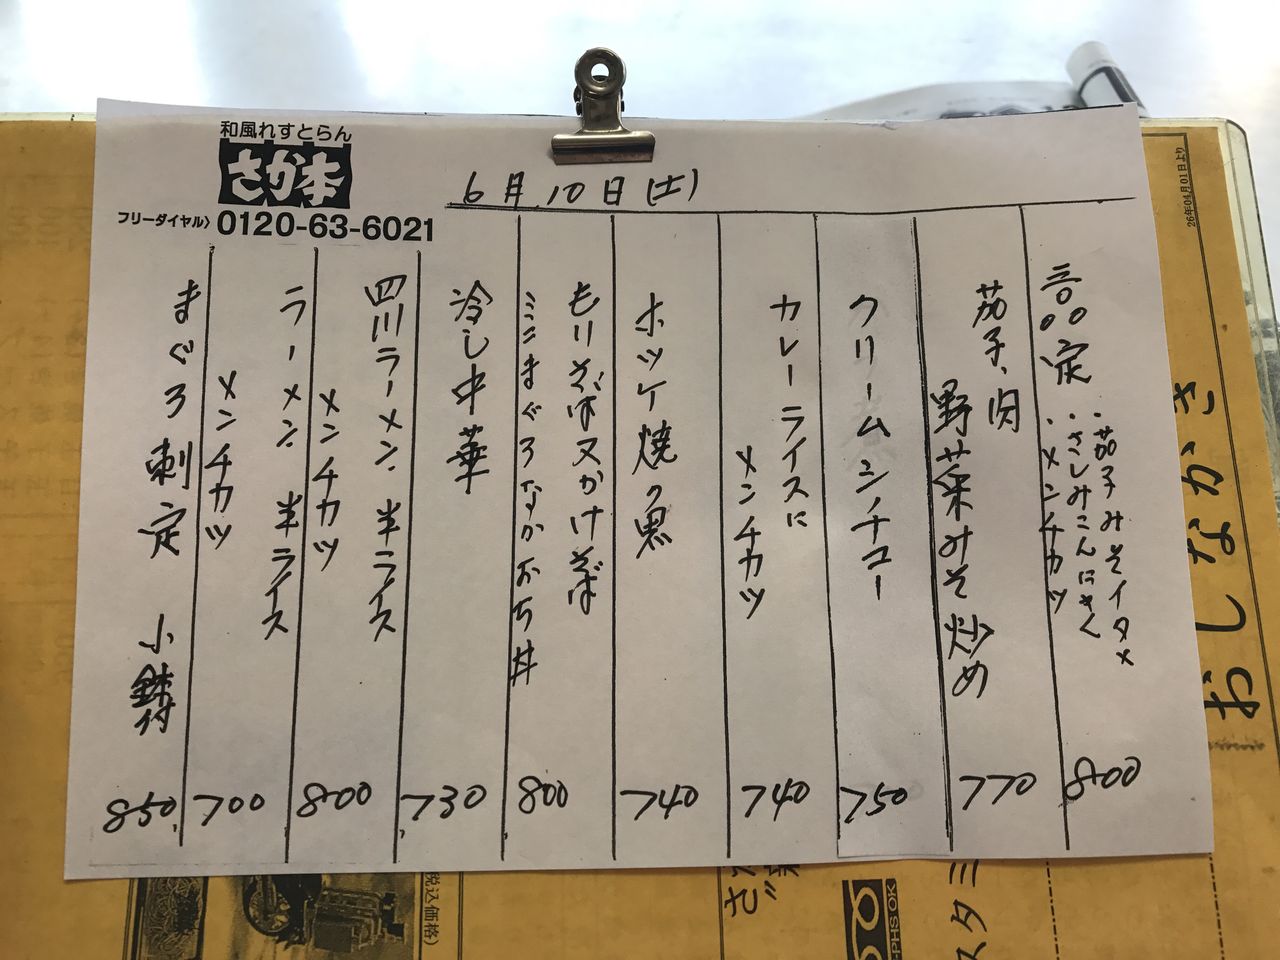 和風れすとらん
さか本
フリーダイヤル〉0120-63-6021
6月10日(土)
三品定
・茄子みそイタメ
・さしみこんにゃく
・メンチカツ
800
茄子、肉
野菜みそ炒め
770
クリームシチュー
750
カレーライスに
メンチカツ
740
ホッケ焼魚
740
もりそば又かけそば
ミニまぐろなかおち丼
800
冷し中華
730
四川ラーメン、半ライス
メンチカツ
800
ラーメン 半ライス
メンチカツ
700
まぐろ刺定 小鉢付
850
26年04月01日より
おしながき
税込価格)
スタミ
PHS OK